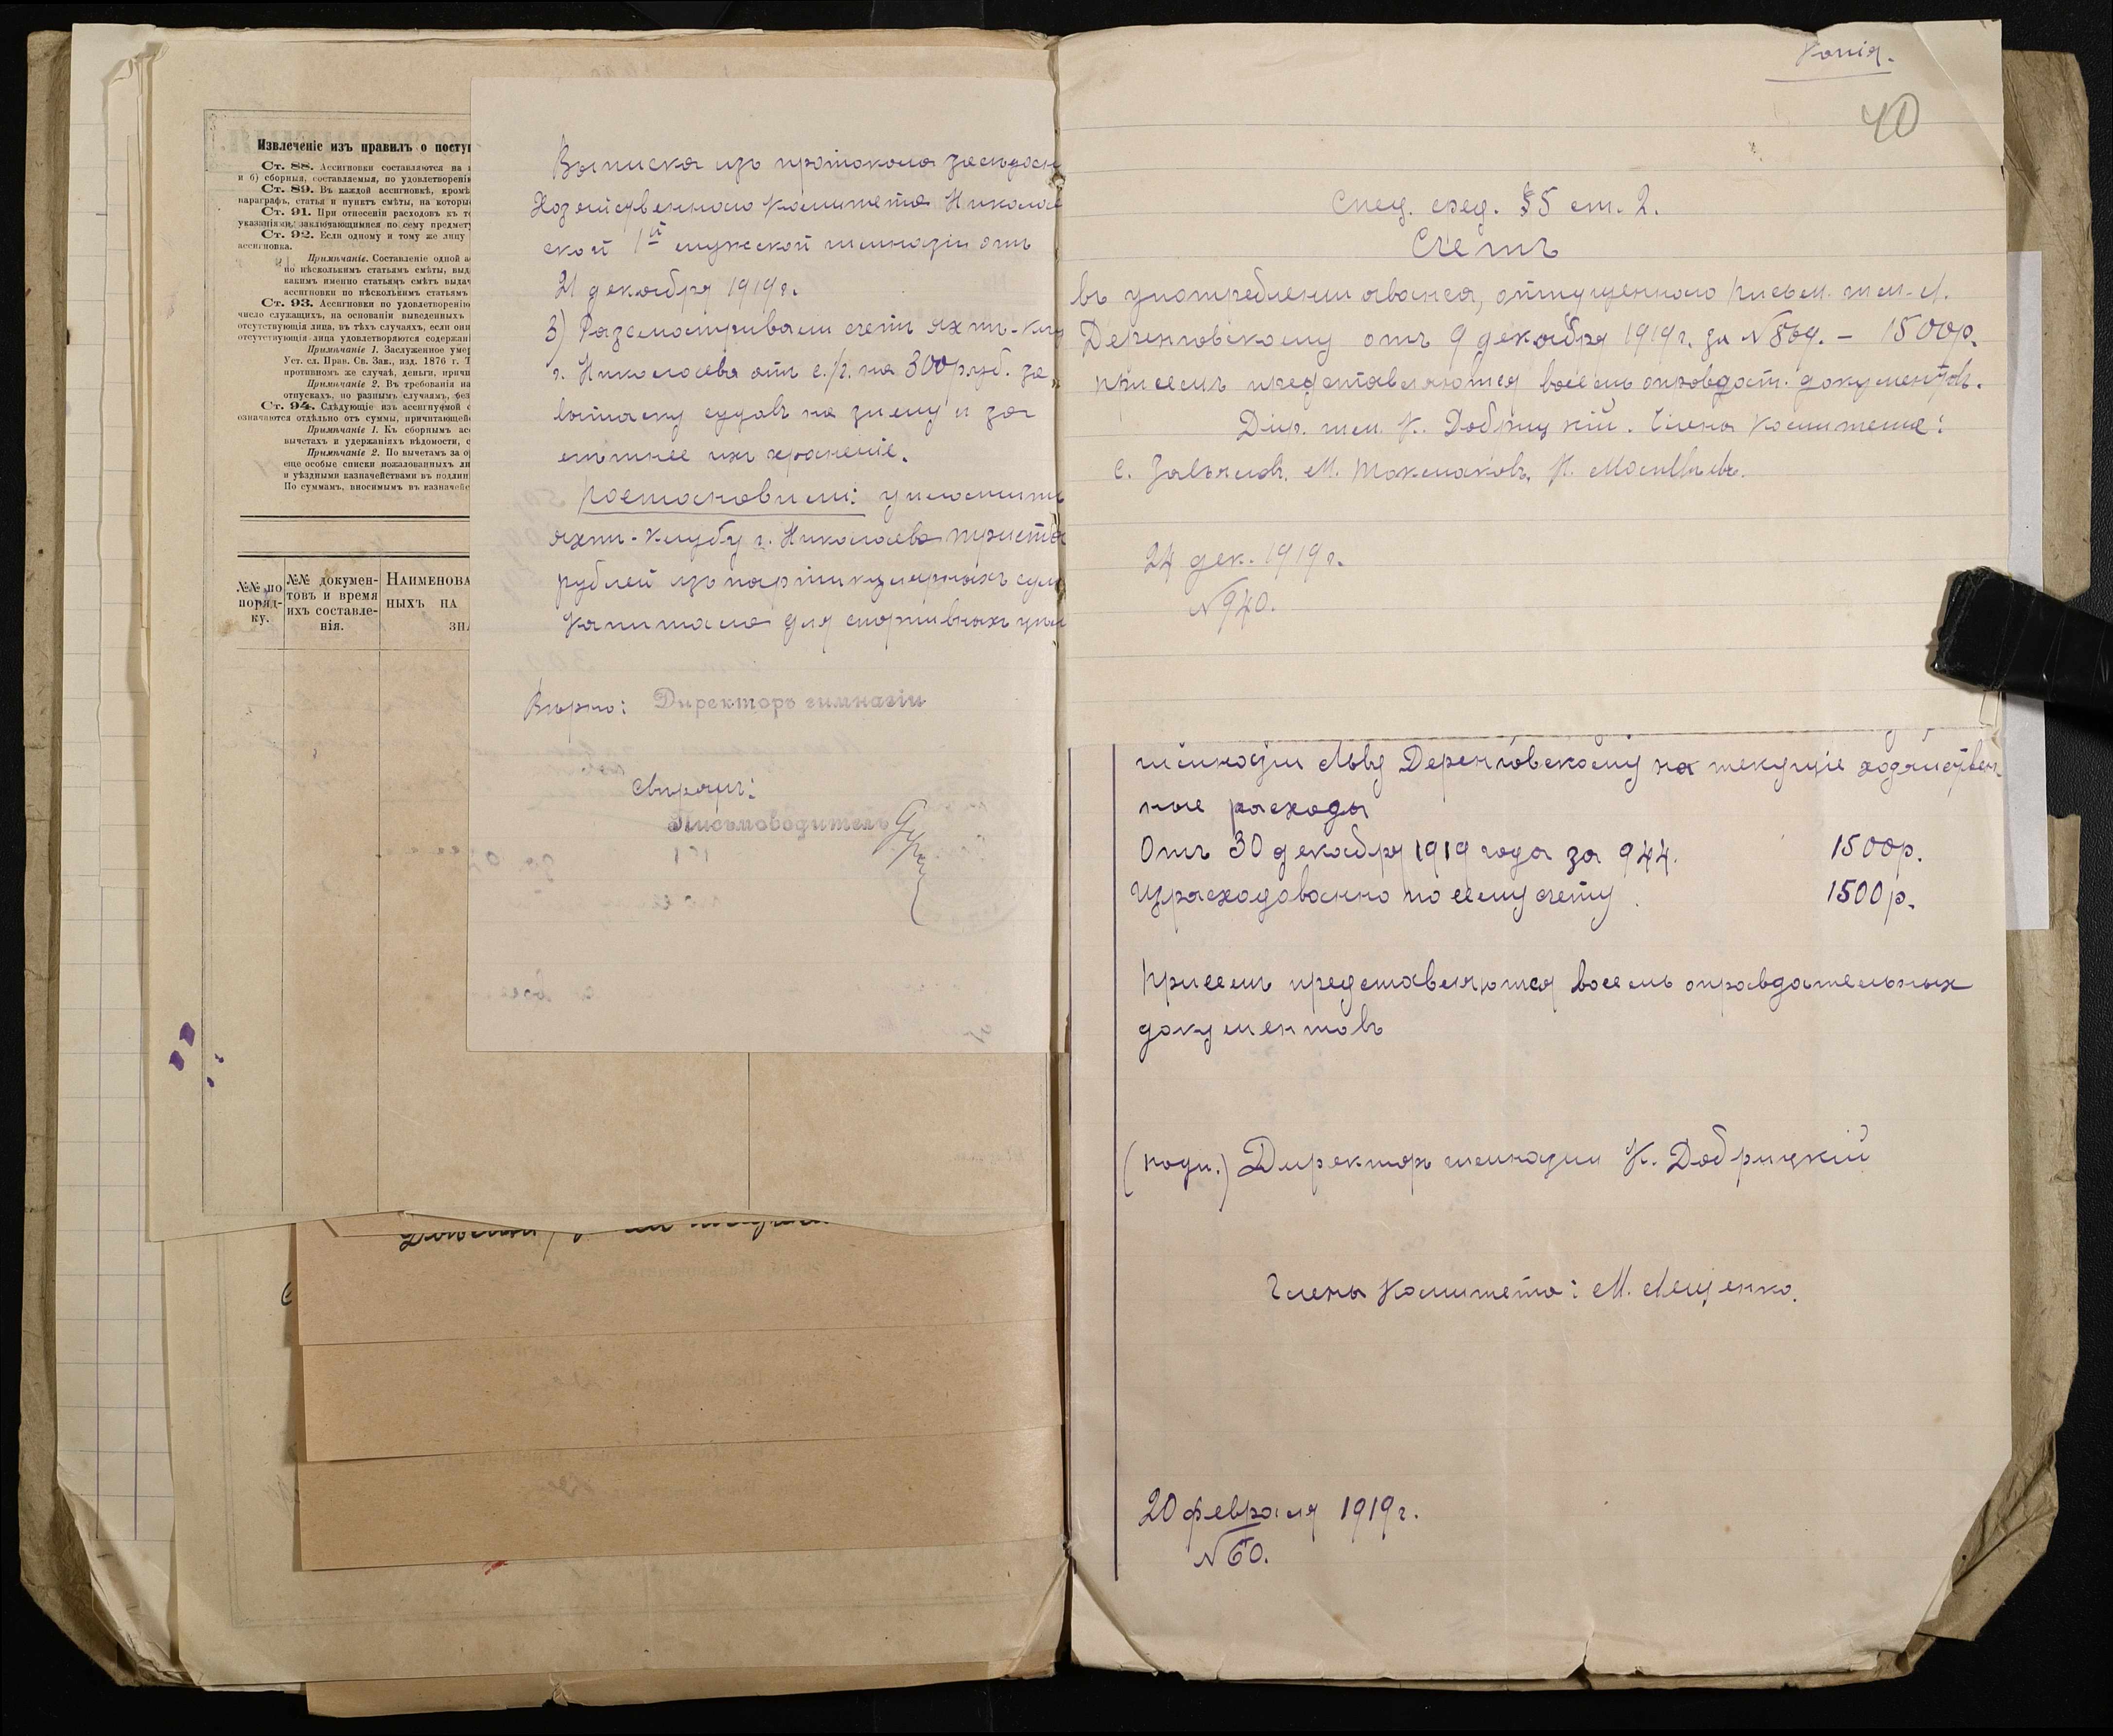 Извлеченіе изъ правилъ о посту
Ст. 88. Ассигновки составляются на
и б) сборныя, составляемыя, по удовлетворені
Ст. 89. Въ каждой ассигновкѣ, кромѣ
параграфъ, статья и пунктъ смѣты, на которы
Ст. 91. При отнесеніи расходовъ къ
указаніями, заключающимися по сему предмет
Ст. 92. Если одному и тому же лицу
ассигновка.
Примѣчаніе. Составленіе одной
по нѣсколькимъ статьямъ смѣты, выд
какимъ именно статьямъ смѣтъ выда
ассигновки по нѣсколькимъ статьямъ
Ст. 93. Ассигновки по удовлетворенію
число служащихъ, на основаніи выведенныхъ
отсутствующія лица, въ тѣхъ случаяхъ, если они
отсутствующія лица удовлетворяются содержан
Примѣчаніе 1. Заслуженное умер
Уст. сл. Прав. Св. Зак., изд. 1876 г. Т
противномъ же случаѣ, деньги, причи
Примѣчаніе 2. Въ требованія на
отпускахъ, по разнымъ случаямъ, без
Ст. 94. Слѣдующіе изъ ассигнуемой с
означаются отдѣльно отъ суммы, причитающейс
Примѣчаніе 1. Къ сборнымъ асс
вычетахъ и удержаніяхъ вѣдомости, с
Примѣчаніе 2. По вычетамъ за о
еще особые списки пожалованныхъ ли
и уѣздными казначействами въ подлин
По суммамъ, вносимымъ въ казначейс
№№ по поряд-ку.
№№ докумен-товъ и время ихъ составле-нія.
Наименова
ныхъ на
зна
Выписка изъ протокола засѣдан
Хозяйственнаго Комитета Николае
ской 1й мужской гимназіи отъ
21 декабря 1919 г.
3) Разсматривали счетъ яхтъ-клу
г. Николаева отъ с./г. на 300 руб. за
вытаску судовъ на зиму и за
лѣтнее ихъ храненіе.
Постановили: уплатить
яхтъ-клубу г. Николаева триста
рублей изъ партикулярныхъ сум
капитала для спортивныхъ цѣл
Вѣрно: Директоръ гимназіи
Свѣрялъ:
Письмоводитель
Копія.
40
Спец. сред. §5 ст. 2.
Счетъ
въ употребленіи аванса, отпущеннаго письм. гим. Л.
Деренговскому отъ 9 декабря 1919 г. за №869. – 1500р.
При семъ представляются восемь оправдат. документовъ.
Дир. гим. К. Добрицкій. Члены Комитета:
М. Токмаковъ,
24 дек. 1919 г.
№940.
гимназіи Льву Деренговскому на текущіе хозяйствен
ные расходы
Отъ 30 декабря 1919 года за 944. 1500р.
Израсходованно по сему счету 1500р.
При семъ представляются восемь оправдательныхъ
документовъ
(подп.) Директоръ гимназіи К. Добрицкій
Члены Комитета: М. Лещенко.
20 февраля 1919 г.
№60.